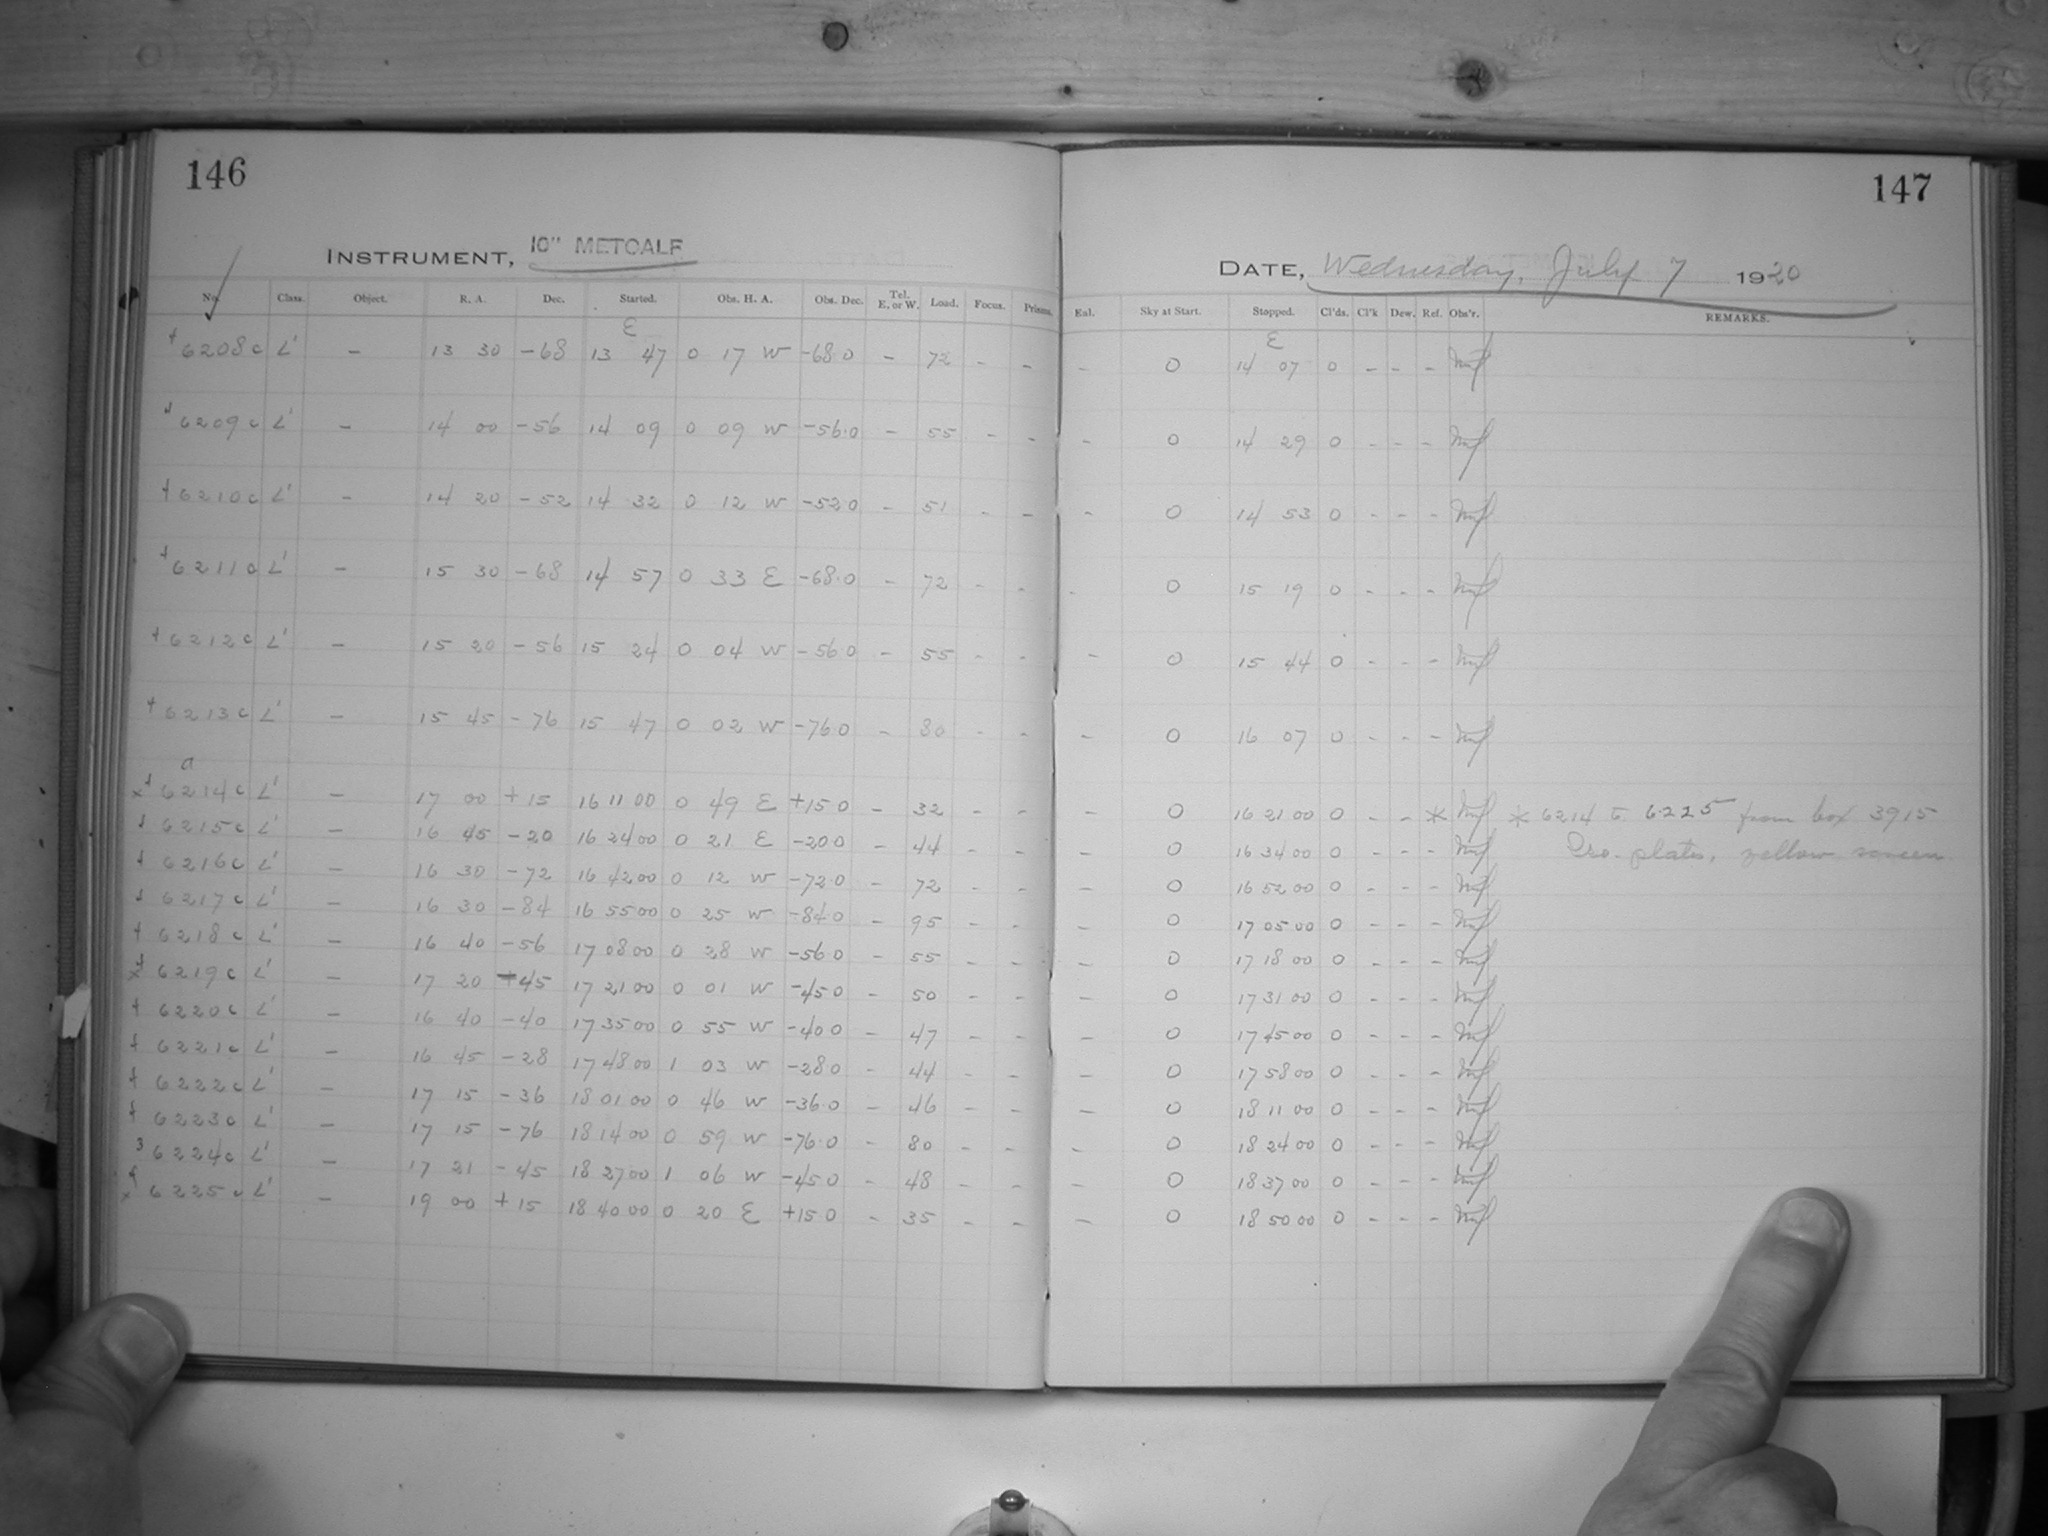 146
147
INSTRUMENT, 10" METCALF
DATE, Wednesday, July 7 1920
No. Class. Object. R. A. Dec. Started. Obs. H. A. Obs. Dec. Tel. E. or W. Load. Focus. Prisms. Eul. Sky at Start. Stopped. Cl'ds. Cl'k Dew. Ref. Obs'r. REMARKS.
E E
6208c L' – 13 30 -68 13 47 0 17 W -68.0 – 72 – – – 0 14 07 0 – – –
6209c L' – 14 00 -56 14 09 0 09 W -56.0 – 55 – – – 0 14 29 0 – – –
6210c L' – 14 20 -52 14 32 0 12 W -52.0 – 51 – – – 0 14 53 0 – – –
6211c L' – 15 30 -68 14 57 0 33 E -68.0 – 72 – – – 0 15 19 0 – – –
6212c L' – 15 20 -56 15 24 0 04 W -56.0 – 55 – – – 0 15 44 0 – – –
6213c L' – 15 45 -76 15 47 0 02 W -76.0 – 80 – – – 0 16 07 0 – – –
a
x 6214c L' – 17 00 +15 16 11 00 0 49 E +15.0 – 32 – – – 0 16 21 00 0 – – * * 6214 to 6225 from box 3915
6215c L' – 16 45 -20 16 24 00 0 21 E -20.0 – 44 – – – 0 16 34 00 0 – – – Iso. plates, yellow screen
6216c L' – 16 30 -72 16 42 00 0 12 W -72.0 – 72 – – – 0 16 52 00 0 – – –
6217c L' – 16 30 -84 16 55 00 0 25 W -84.0 – 95 – – – 0 17 05 00 0 – – –
6218c L' – 16 40 -56 17 08 00 0 28 W -56.0 – 55 – – – 0 17 18 00 0 – – –
x 6219c L' – 17 20 +45 17 21 00 0 01 W -45.0 – 50 – – – 0 17 31 00 0 – – –
6220c L' – 16 40 -40 17 35 00 0 55 W -40.0 – 47 – – – 0 17 45 00 0 – – –
6221c L' – 16 45 -28 17 48 00 1 03 W -28.0 – 44 – – – 0 17 58 00 0 – – –
6222c L' – 17 15 -36 18 01 00 0 46 W -36.0 – 46 – – – 0 18 11 00 0 – – –
6223c L' – 17 15 -76 18 14 00 0 59 W -76.0 – 80 – – – 0 18 24 00 0 – – –
3 6224c L' – 17 21 -45 18 27 00 1 06 W -45.0 – 48 – – – 0 18 37 00 0 – – –
x 6225c L' – 19 00 +15 18 40 00 0 20 E +15.0 – 35 – – – 0 18 50 00 0 – – –